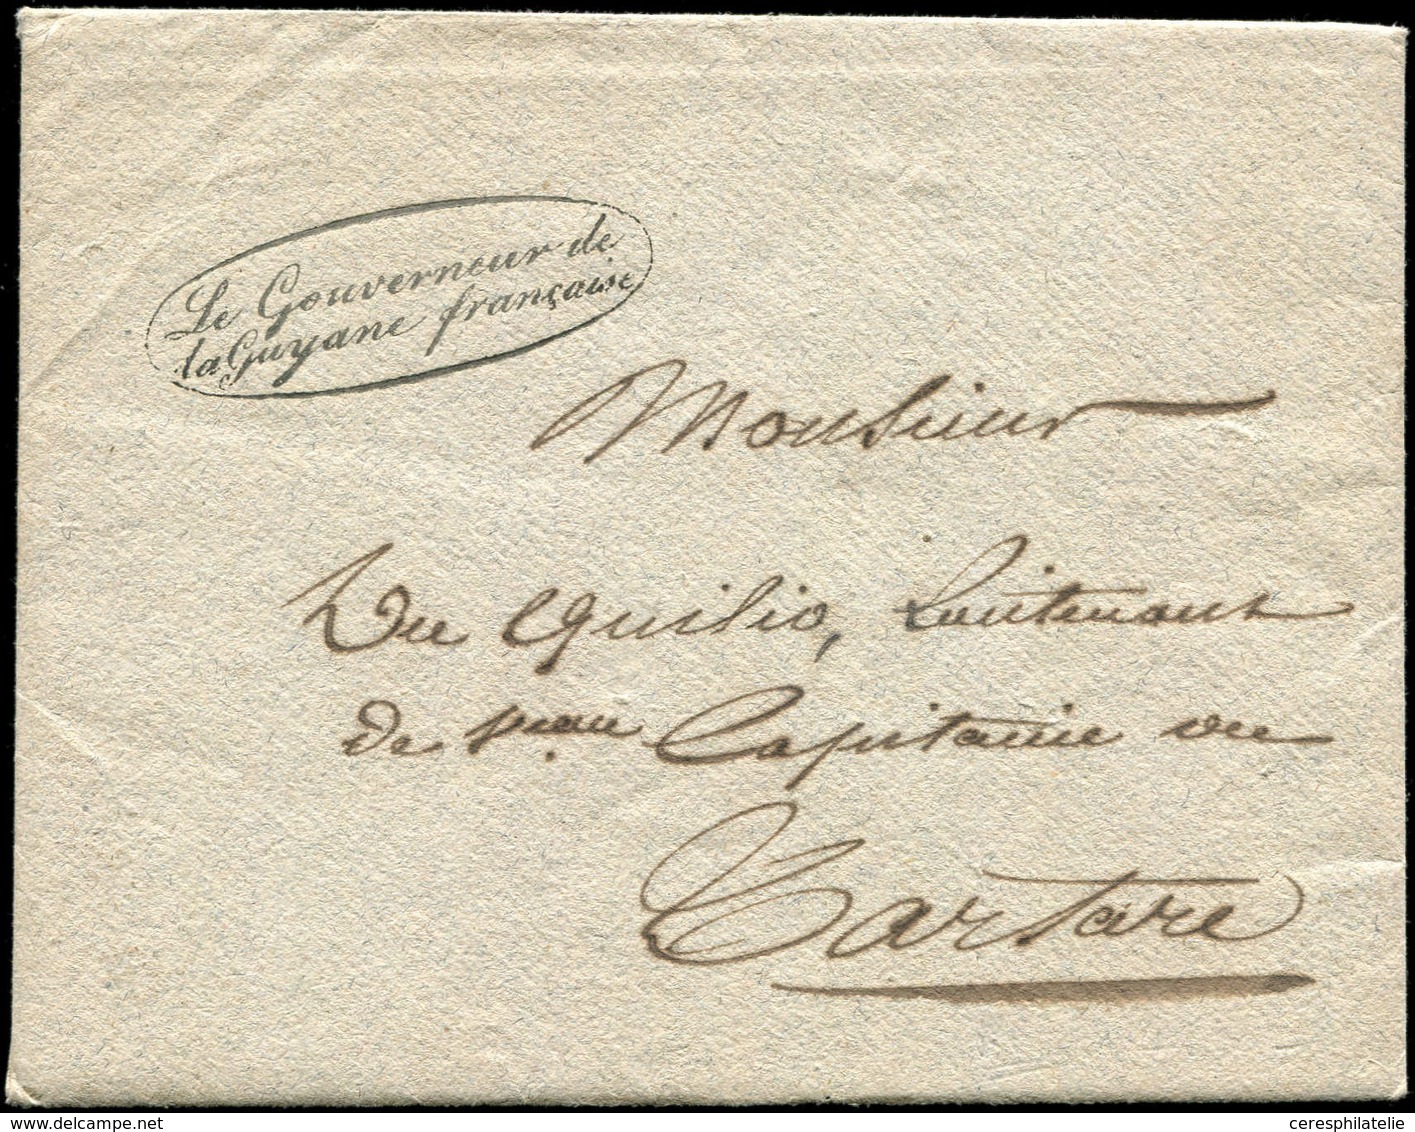 Le Gouverneur de
la Guyane française
Monsieur
Du Quilio, Lieutenant
de Vaau Capitaine du
Tartare
ceresphilatelie